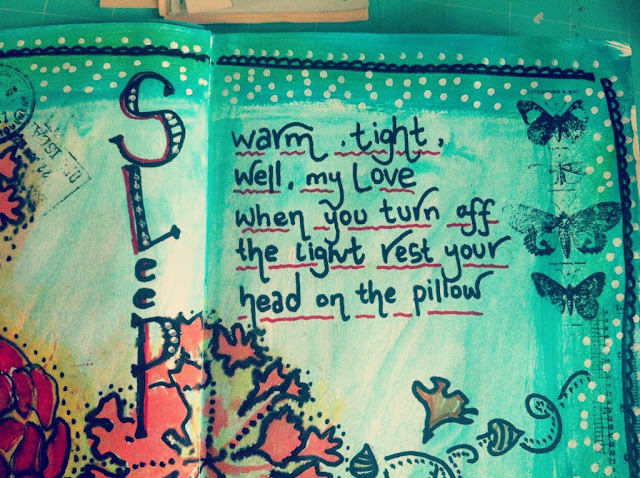 SLeeP
warm , tight ,
well, my Love
when you turn off
the light rest your
head on the pillow